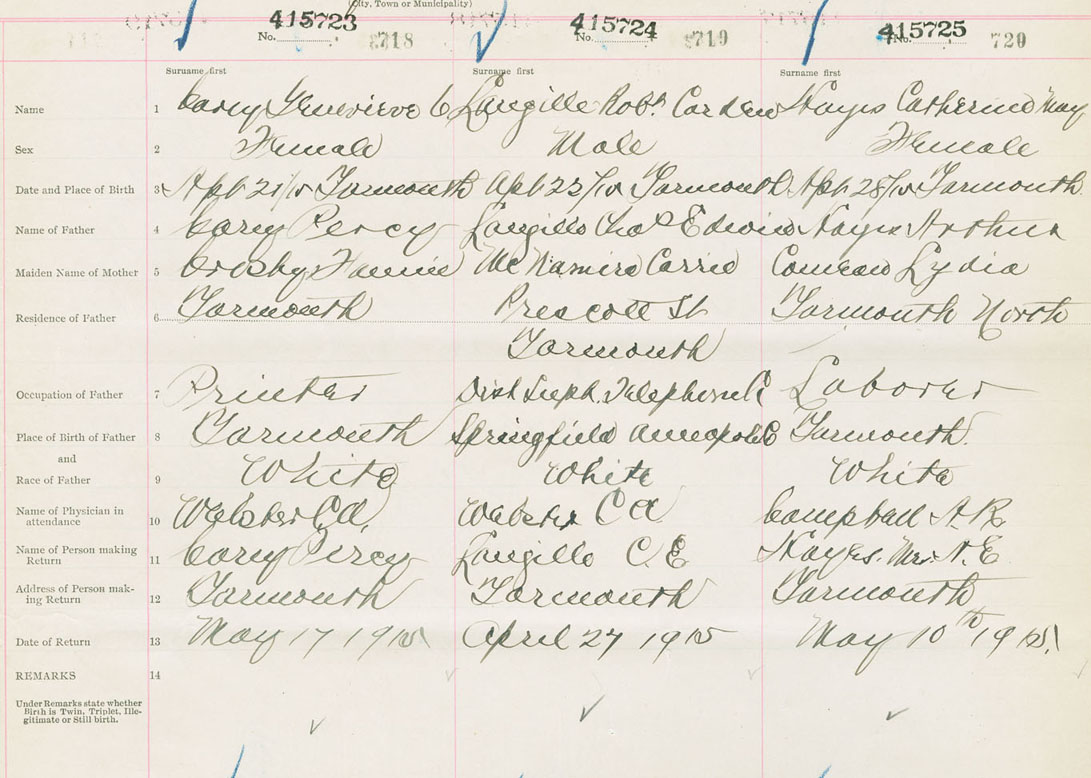 (City, Town or Municipality)
415723 415724 415725
No. 718 No. 719 No. 720
Surname first Surname first Surname first
Name 1 Corey Genevieve C Langille Robt. Carden Hayes Catherine May
Sex 2 Female Male Female
Date and Place of Birth 3 Apl 21/15 Yarmouth Apl 23/15 Yarmouth Apl 28/15 Yarmouth
Name of Father 4 Corey Percy Langille Chas Edwin Hayes Arthur
Maiden Name of Mother 5 Crosby Fannie McNamira Carrie Comeau Lydia
Residence of Father 6 Yarmouth Prescott St Yarmouth North
Yarmouth
Occupation of Father 7 Printer Dist Telephone Laborer
Place of Birth of Father 8 Yarmouth Springfield Annapolis Yarmouth.
and
Race of Father 9 White White White
Name of Physician in attendance 10 Webster C A. Webster C A Campbell A R
Name of Person making Return 11 Corey Percy Langille C. E Hayes. Mrs. A. E
Address of Person making Return 12 Yarmouth Yarmouth Yarmouth
Date of Return 13 May 17 1915 April 27 1915 May 10th 1915.
REMARKS 14
Under Remarks state whether
Birth is Twin, Triplet, Ille-
gitimate or Still birth.